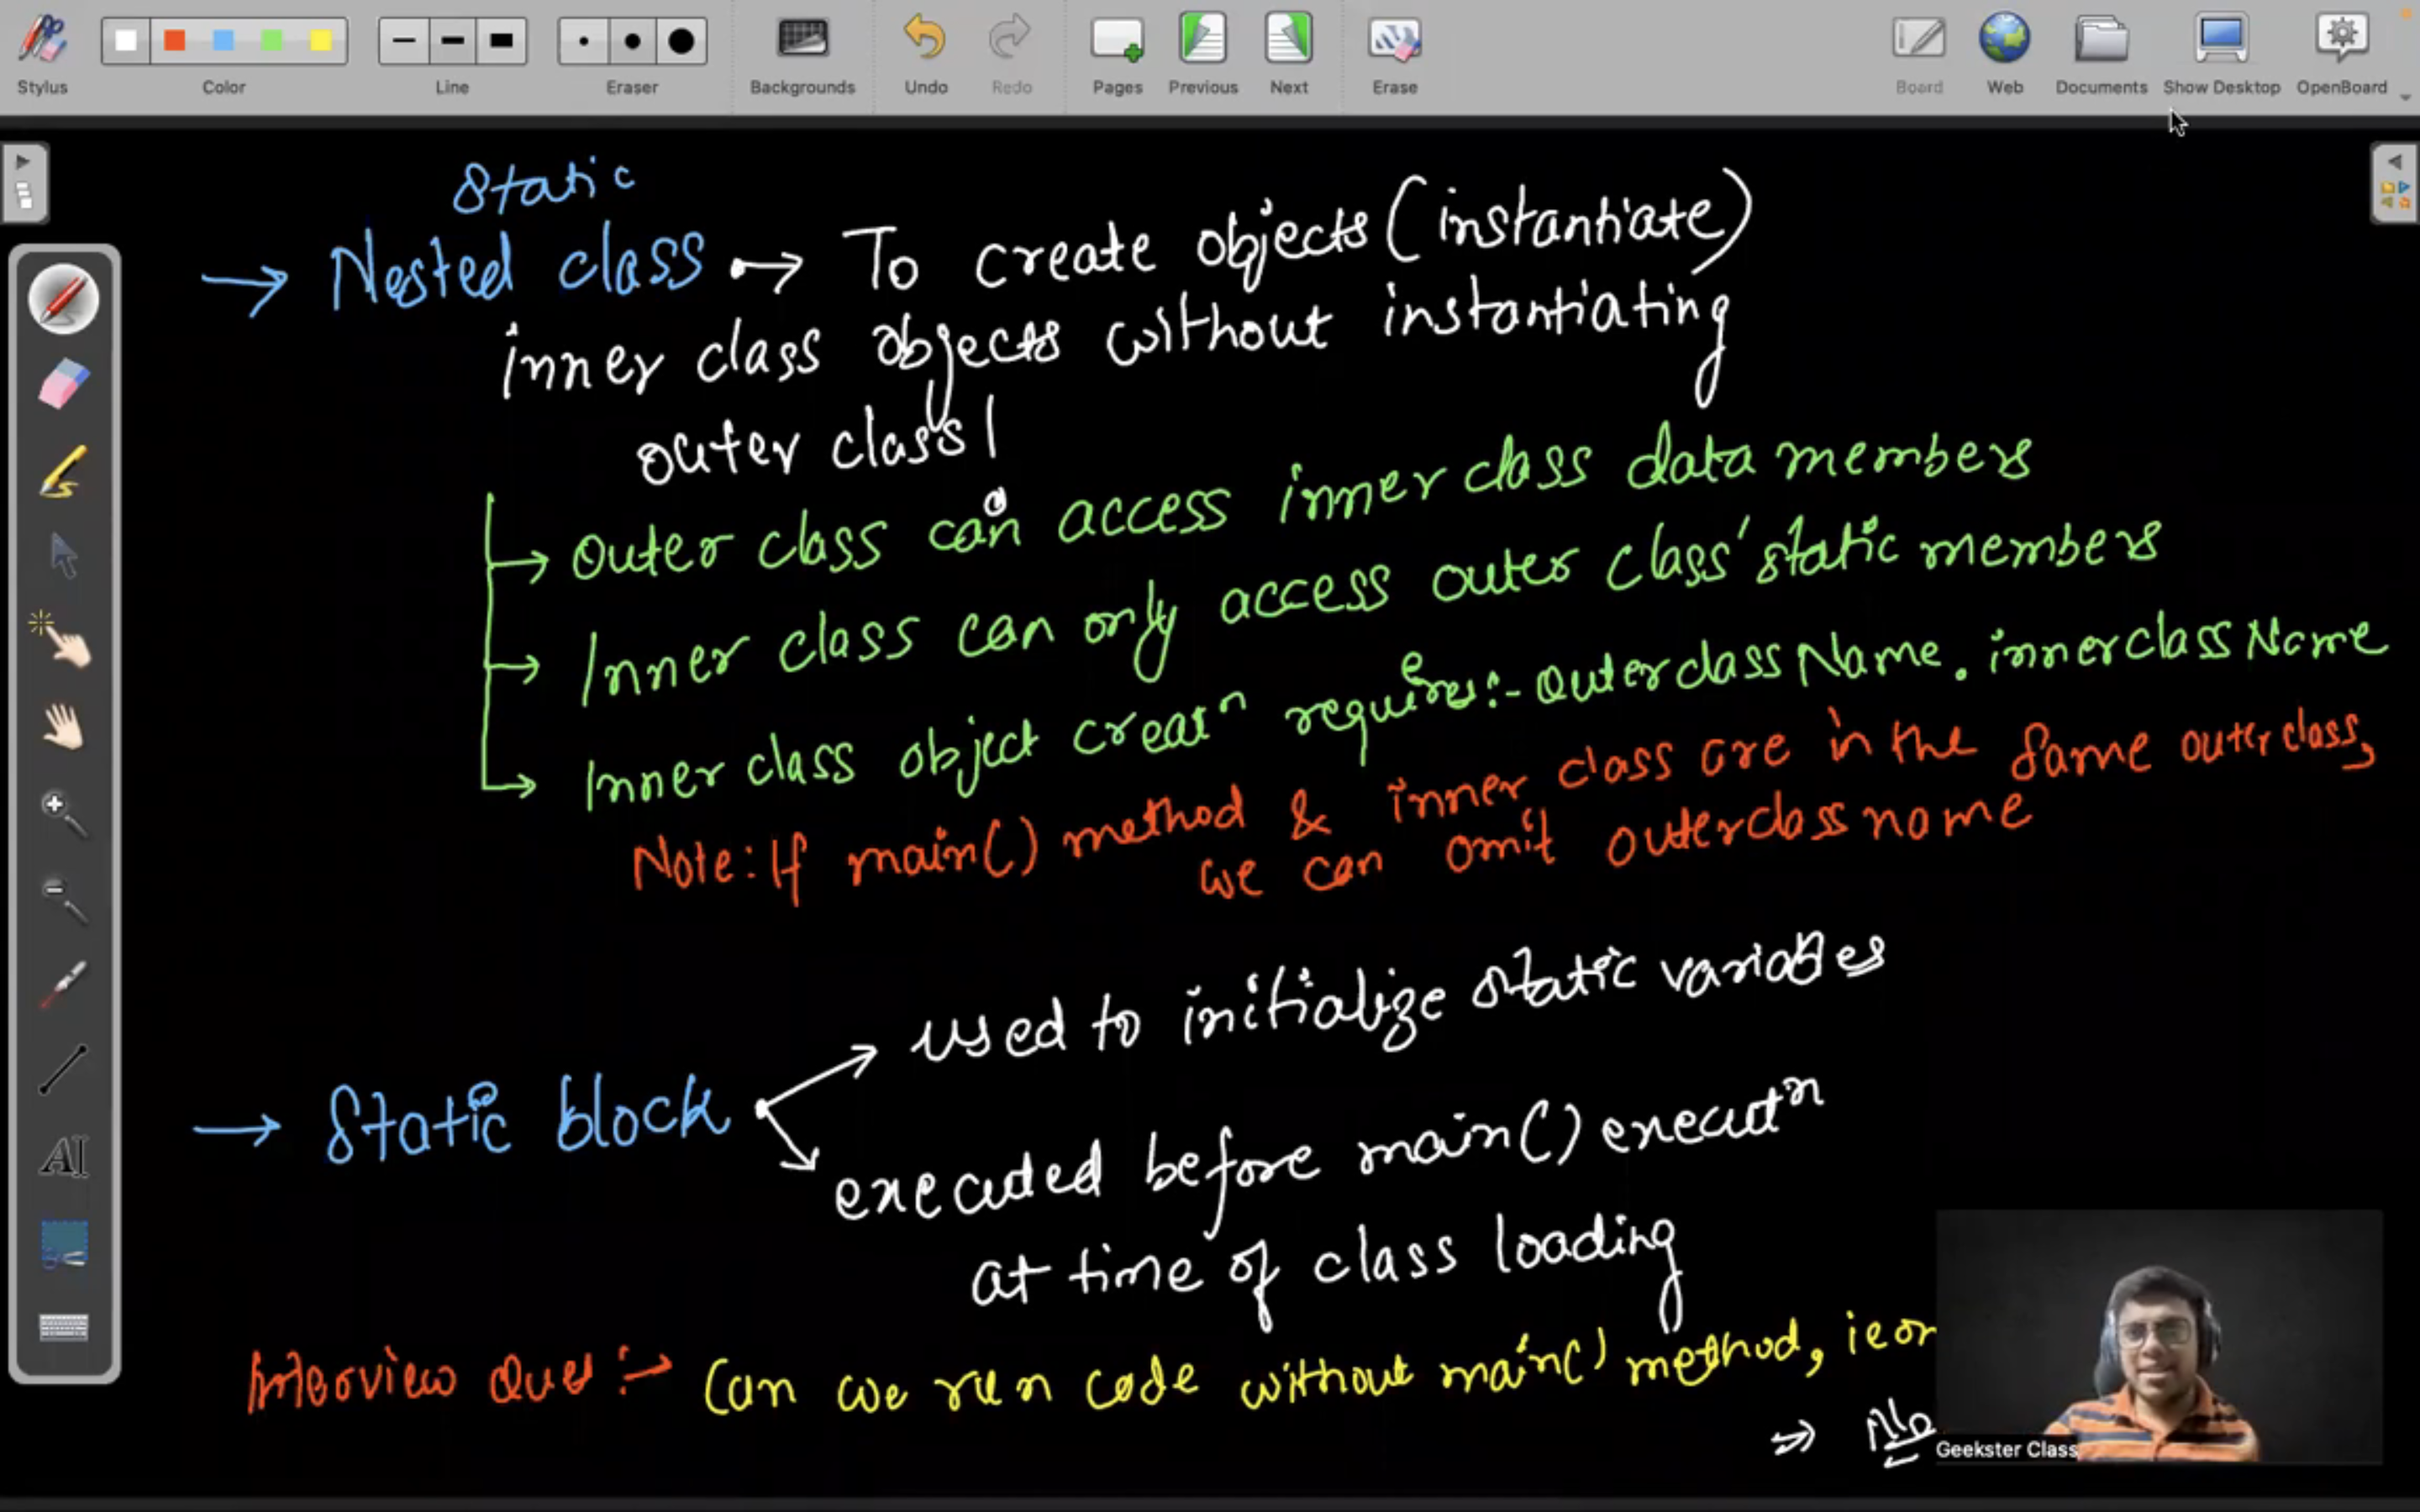 Stylus
Color
Line
Eraser
Backgrounds
Undo
Redo
Pages
Previous
Next
Erase
Board
Web
Documents
Show Desktop
OpenBoard
Static
→ Nested class → To create objects (instantiate)
inner class objects without instantiating
outer class
→ Outer class can access inner class data members
→ Inner class can only access outer class' static members
→ Inner class object creatⁿ requires:- OuterclassName.innerclassName
Note: If main() method & inner class are in the same outer class,
we can omit outerclassname
used to initialize static variables
→ Static block
executed before main() executⁿ
at time of class loading
Interview Ques :→ Can we run code without main() method, ie or
⇒ No
Geekster Class
AI